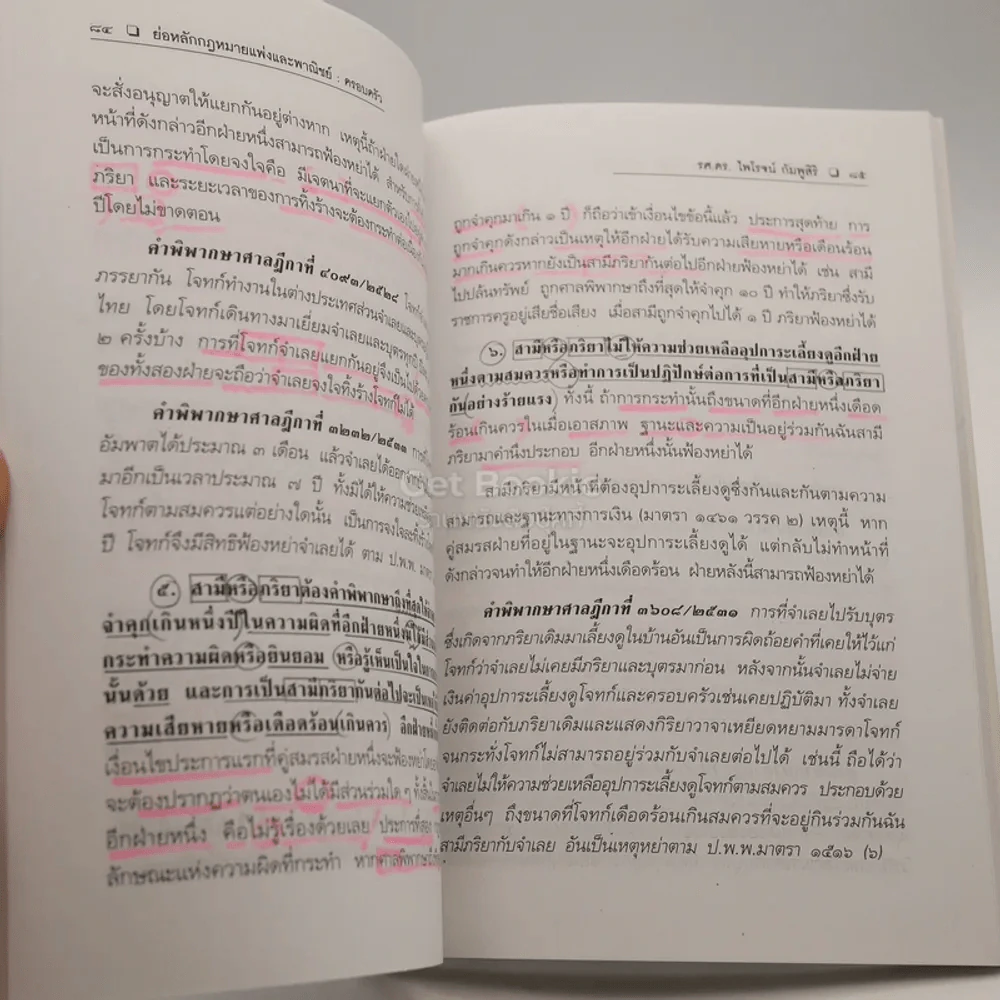 ๘๔ ❏ ย่อหลักกฎหมายแพ่งและพาณิชย์ : ครอบครัว
จะสั่งอนุญาตให้แยกกันอยู่ต่างหาก เหตุนี้ถ้าฝ่ายใด
หน้าที่ดังกล่าวอีกฝ่ายหนึ่งสามารถฟ้องหย่าได้ สำหรับ
เป็นการกระทำโดยจงใจคือ มีเจตนาที่จะแยกตัว
ภริยา และระยะเวลาของการทิ้งร้างจะต้องกระทำต่อเนื่อง
ปีโดยไม่ขาดตอน
คำพิพากษาศาลฎีกาที่ ๔๐๙๓/๒๕๒๘
ภรรยากัน โจทก์ทำงานในต่างประเทศส่วนจำเลยและบุตร
ไทย โดยโจทก์เดินทางมาเยี่ยมจำเลยและบุตรทุกปี
๒ ครั้งบ้าง การที่โจทก์จำเลยแยกกันอยู่จึงเป็นไปด้วย
ของทั้งสองฝ่ายจะถือว่าจำเลยจงใจทิ้งร้างโจทก์ไม่ได้
คำพิพากษาศาลฎีกาที่ ๓๒๓๒/๒๕๓๑
อัมพาตได้ประมาณ ๓ เดือน แล้วจำเลยได้ออกจาก
มาอีกเป็นเวลาประมาณ ๗ ปี ทั้งมิได้ให้ความช่วย
โจทก์ตามสมควรแต่อย่างใดนั้น เป็นการจงใจละทิ้งร้าง
ปี โจทก์จึงมีสิทธิฟ้องหย่าจำเลยได้ ตาม ป.พ.พ. มาตรา
๕. สามีหรือภริยาต้องคำพิพากษาถึงที่สุดให้
จำคุกเกินหนึ่งปีในความผิดที่อีกฝ่ายหนึ่งมิได้มี
กระทำความผิดหรือยินยอม หรือรู้เห็นเป็นใจในการ
นั้นด้วย และการเป็นสามีภริยากันต่อไปจะเป็น
ความเสียหายหรือเดือดร้อนเกินควร อีกฝ่าย
เงื่อนไขประการแรกที่คู่สมรสฝ่ายหนึ่งจะฟ้องหย่า
จะต้องปรากฏว่าตนเองไม่ได้มีส่วนร่วมใด ๆ ทั้งสิ้น
อีกฝ่ายหนึ่ง คือไม่รู้เรื่องด้วยเลย ประการที่สอง
ลักษณะแห่งความผิดที่กระทำ หากศาลพิพากษา
รศ.ดร. ไพโรจน์ กัมพูสิริ ❏ ๘๕
ถูกจำคุกมาเกิน ๑ ปี ก็ถือว่าเข้าเงื่อนไขข้อนี้แล้ว ประการสุดท้าย การ
ถูกจำคุกดังกล่าวเป็นเหตุให้อีกฝ่ายได้รับความเสียหายหรือเดือนร้อน
มากเกินควรหากยังเป็นสามีภริยากันต่อไปอีกฝ่ายฟ้องหย่าได้ เช่น สามี
ไปปล้นทรัพย์ ถูกศาลพิพากษาถึงที่สุดให้จำคุก ๑๐ ปี ทำให้ภริยาซึ่งรับ
ราชการครูอยู่เสียชื่อเสียง เมื่อสามีถูกจำคุกไปได้ ๑ ปี ภริยาฟ้องหย่าได้
๖. สามีหรือภริยาไม่ให้ความช่วยเหลืออุปการะเลี้ยงดูอีกฝ่าย
หนึ่งตามสมควรหรือทำการเป็นปฏิปักษ์ต่อการที่เป็นสามีหรือภริยา
กันอย่างร้ายแรง ทั้งนี้ ถ้าการกระทำนั้นถึงขนาดที่อีกฝ่ายหนึ่งเดือด
ร้อนเกินควรในเมื่อเอาสภาพ ฐานะและความเป็นอยู่ร่วมกันฉันสามี
ภริยามาคำนึงประกอบ อีกฝ่ายหนึ่งนั้นฟ้องหย่าได้
สามีภริยามีหน้าที่ต้องอุปการะเลี้ยงดูซึ่งกันและกันตามความ
สามารถและฐานะทางการเงิน (มาตรา ๑๔๖๑ วรรค ๒) เหตุนี้ หาก
คู่สมรสฝ่ายที่อยู่ในฐานะจะอุปการะเลี้ยงดูได้ แต่กลับไม่ทำหน้าที่
ดังกล่าวจนทำให้อีกฝ่ายหนึ่งเดือดร้อน ฝ่ายหลังนี้สามารถฟ้องหย่าได้
คำพิพากษาศาลฎีกาที่ ๓๖๐๘/๒๕๓๑ การที่จำเลยไปรับบุตร
ซึ่งเกิดจากภริยาเดิมมาเลี้ยงดูในบ้านอันเป็นการผิดถ้อยคำที่เคยให้ไว้แก่
โจทก์ว่าจำเลยไม่เคยมีภริยาและบุตรมาก่อน หลังจากนั้นจำเลยไม่จ่าย
เงินค่าอุปการะเลี้ยงดูโจทก์และครอบครัวเช่นเคยปฏิบัติมา ทั้งจำเลย
ยังติดต่อกับภริยาเดิมและแสดงกิริยาวาจาเหยียดหยามมารดาโจทก์
จนกระทั่งโจทก์ไม่สามารถอยู่ร่วมกับจำเลยต่อไปได้ เช่นนี้ ถือได้ว่า
จำเลยไม่ให้ความช่วยเหลืออุปการะเลี้ยงดูโจทก์ตามสมควร ประกอบด้วย
เหตุอื่นๆ ถึงขนาดที่โจทก์เดือดร้อนเกินสมควรที่จะอยู่กินร่วมกันฉัน
สามีภริยากับจำเลย อันเป็นเหตุหย่าตาม ป.พ.พ.มาตรา ๑๕๑๖ (๖)
Get Bookie